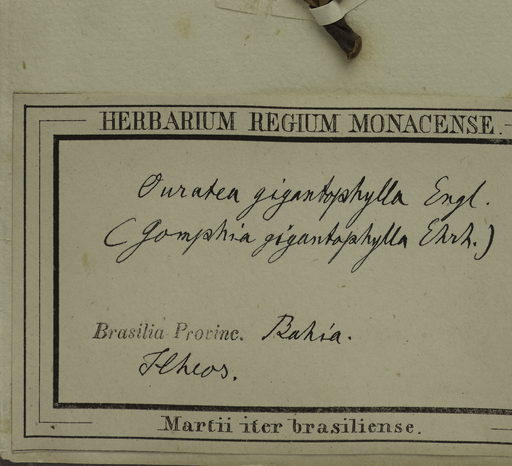 HERBARIUM REGIUM MONACENSE.
Ouratea gigantophylla Engl.
(Gomphia gigantophylla Ehrh.)
Brasilia Provinc. Bahia.
Ilheos.
Martii iter brasiliense.